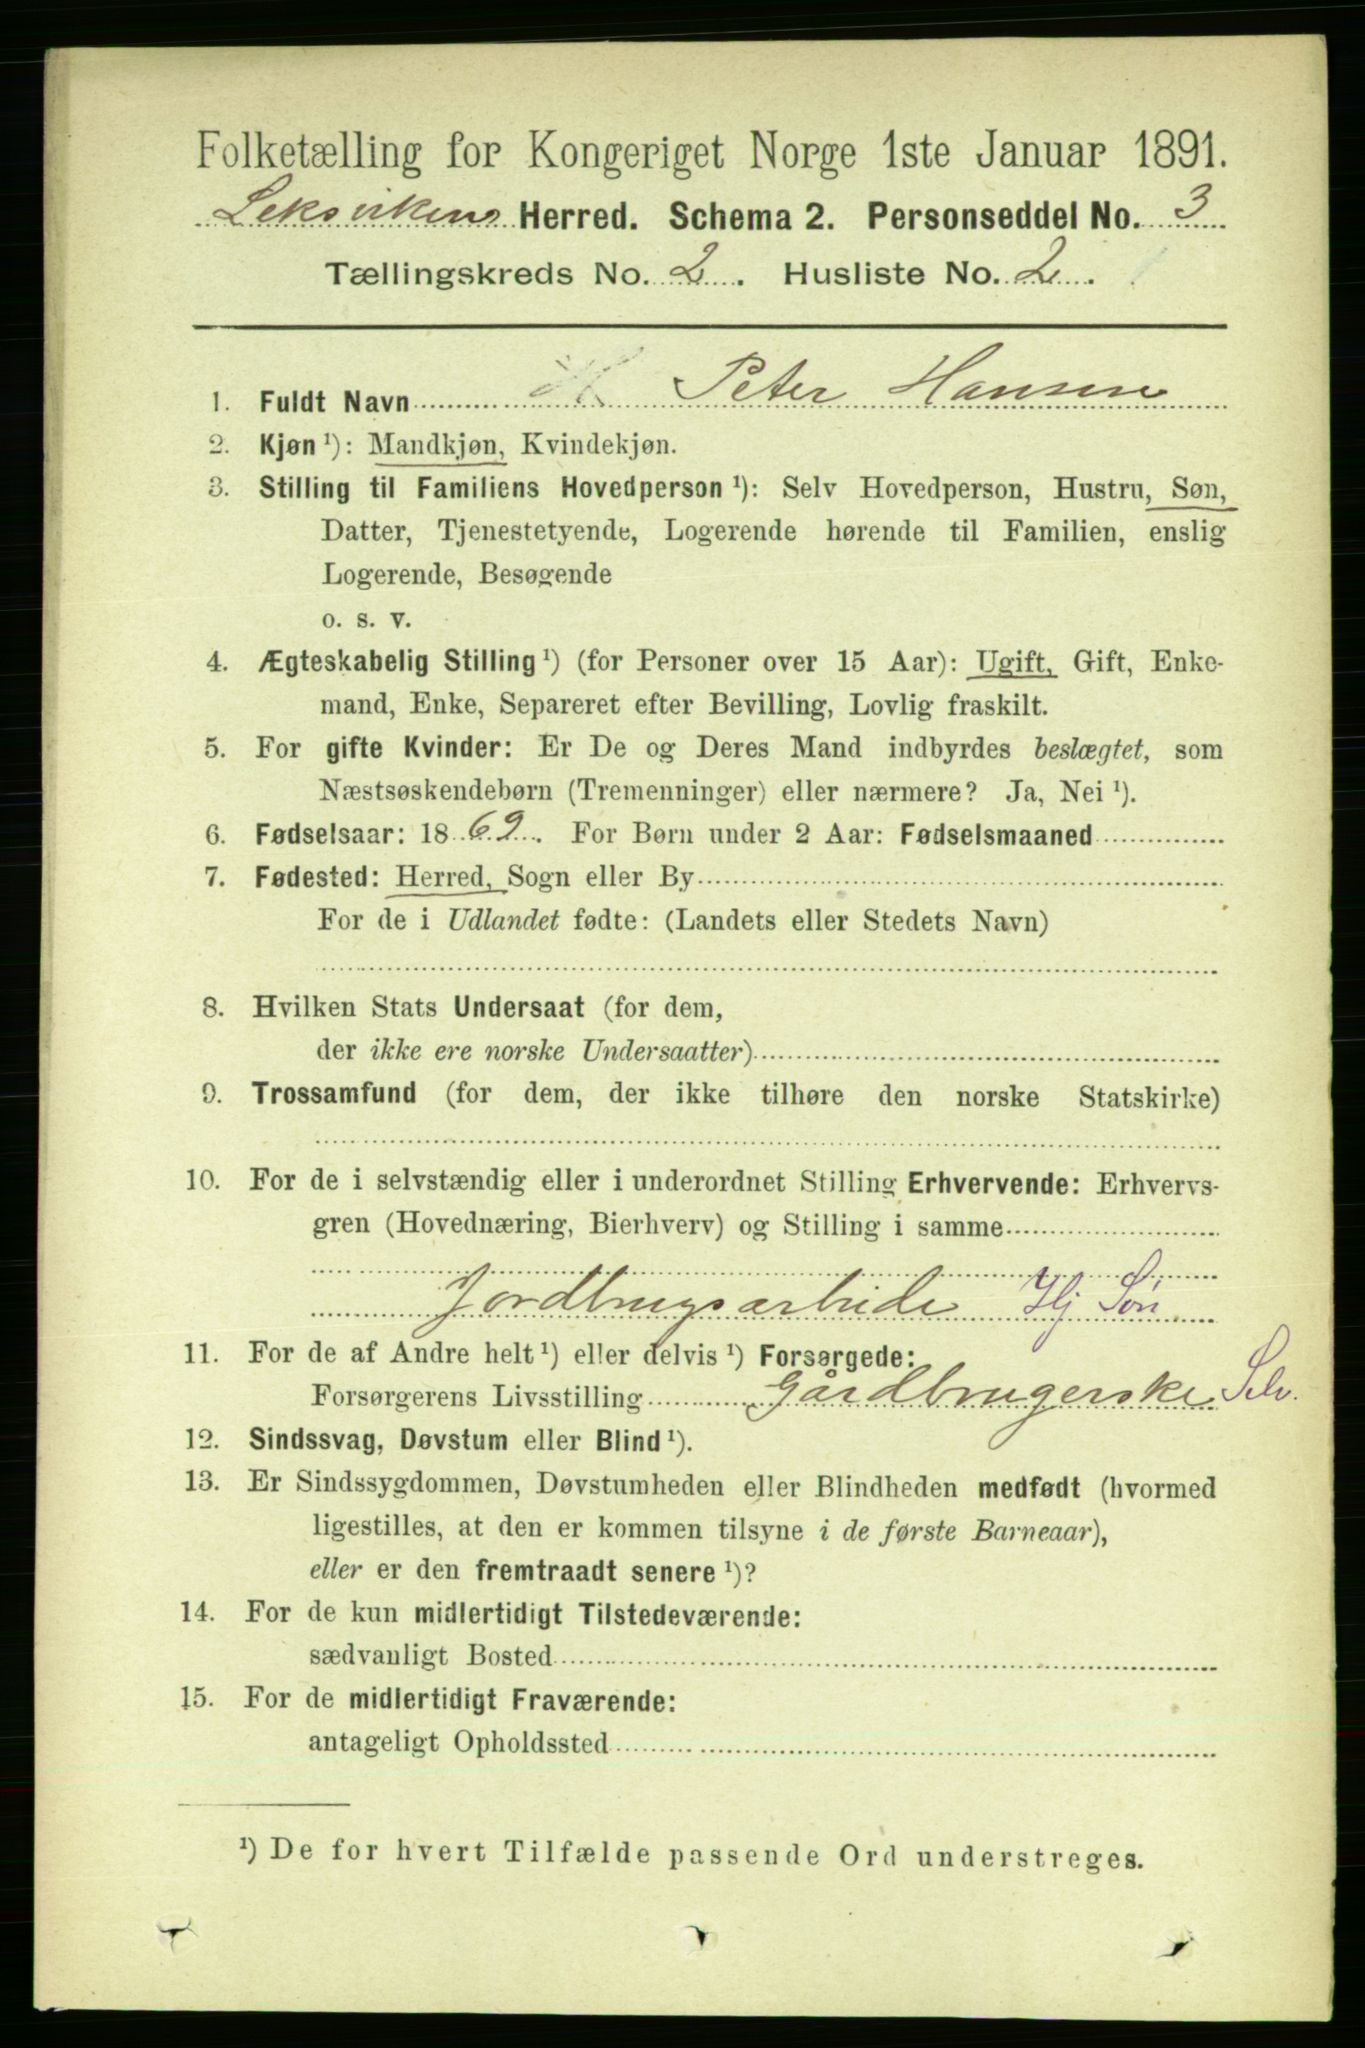 Folketælling for Kongeriget Norge 1ste Januar 1891.
Leksvikens Herred. Schema 2. Personseddel No. 3
Tællingskreds No. 2. Husliste No. 2.
1. Fuldt Navn Peter Hansen
2. Kjøn ¹): Mandkjøn, Kvindekjøn.
3. Stilling til Familiens Hovedperson ¹): Selv Hovedperson, Hustru, Søn,
Datter, Tjenestetyende, Logerende hørende til Familien, enslig
Logerende, Besøgende
o. s. v.
4. Ægteskabelig Stilling ¹) (for Personer over 15 Aar): Ugift, Gift, Enke-
mand, Enke, Separeret efter Bevilling, Lovlig fraskilt.
5. For gifte Kvinder: Er De og Deres Mand indbyrdes beslægtet, som
Næstsøskendebørn (Tremenninger) eller nærmere? Ja, Nei ¹).
6. Fødselsaar: 1869. For Børn under 2 Aar: Fødselsmaaned
7. Fødested: Herred, Sogn eller By
For de i Udlandet fødte: (Landets eller Stedets Navn)
8. Hvilken Stats Undersaat (for dem,
der ikke ere norske Undersaatter)
9. Trossamfund (for dem, der ikke tilhøre den norske Statskirke)
10. For de i selvstændig eller i underordnet Stilling Erhvervende: Erhvervs-
gren (Hovednæring, Bierhverv) og Stilling i samme
Jordbrugsarbeide Hj Søn
11. For de af Andre helt ¹) eller delvis ¹) Forsørgede:
Forsørgerens Livsstilling Gårdbrugerske Selv.
12. Sindssvag, Døvstum eller Blind ¹).
13. Er Sindssygdommen, Døvstumheden eller Blindheden medfødt (hvormed
ligestilles, at den er kommen tilsyne i de første Barneaar),
eller er den fremtraadt senere ¹)?
14. For de kun midlertidigt Tilstedeværende:
sædvanligt Bosted
15. For de midlertidigt Fraværende:
antageligt Opholdssted
¹) De for hvert Tilfælde passende Ord understreges.